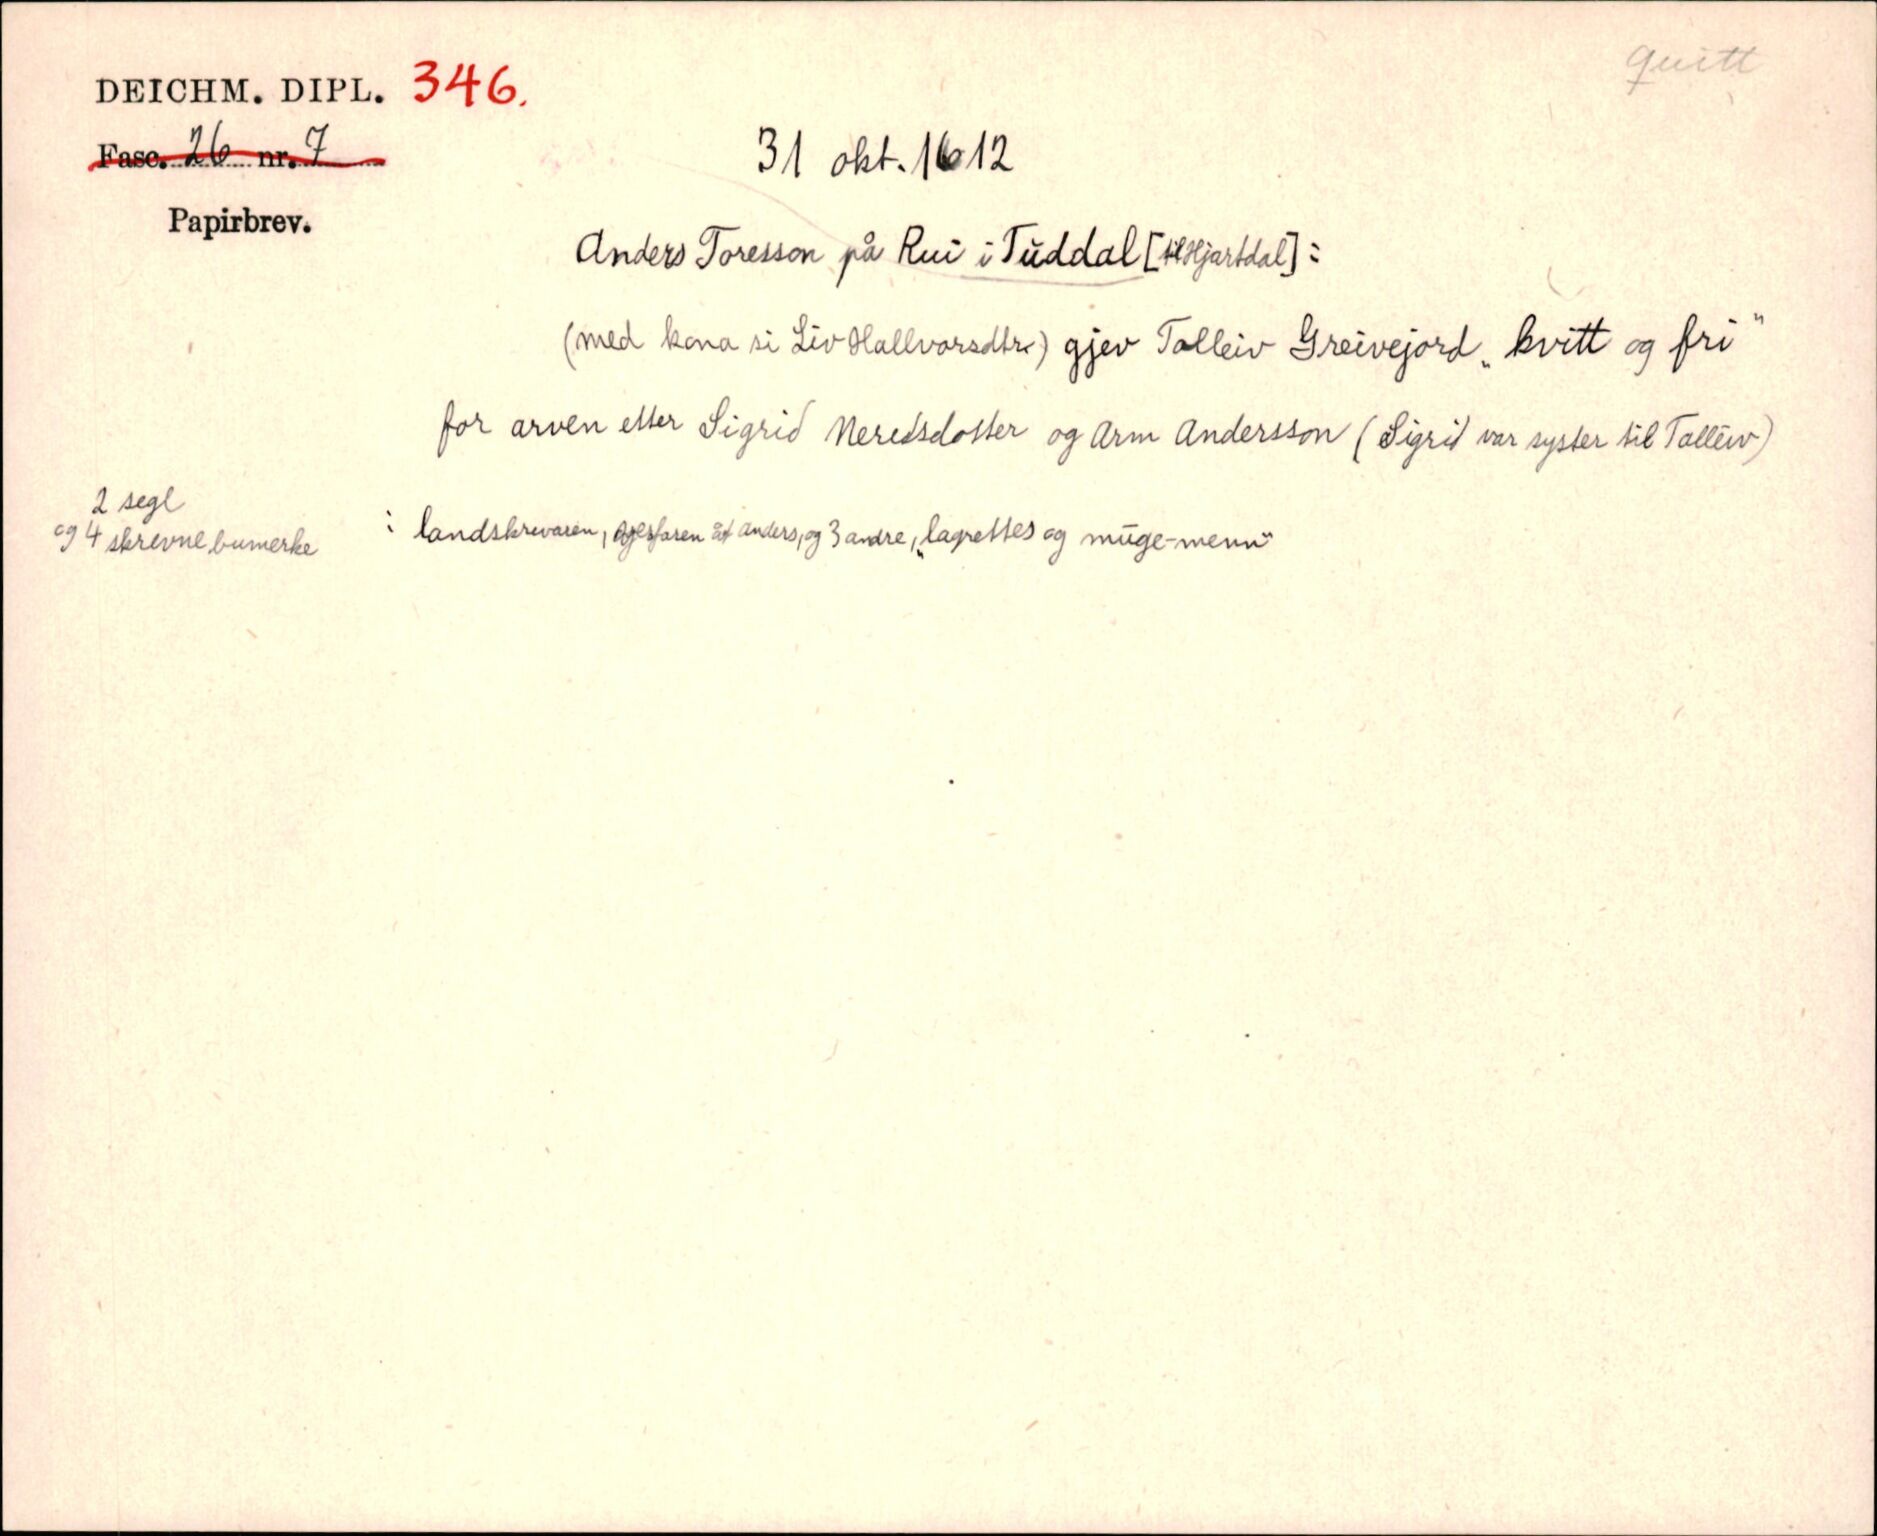 quitt
DEICHM. DIPL. 346.
Fasc. 26 nr. 7
31 okt. 1612
Papirbrev.
Anders Toresson på Rui i Tuddal [til Hjartdal] :
(med kona si Liv Hallvorsdtr.) gjev Talleiv Greivejord „kvitt og fri"
for arven etter Sigrid Neridsdotter og Arm Andersson (Sigrid var syster til Talleiv)
2 segl
og 4 skrevne bumerke
: landskrivaren, åt Anders, og 3 andre, „lagrettes og mūge-menn"